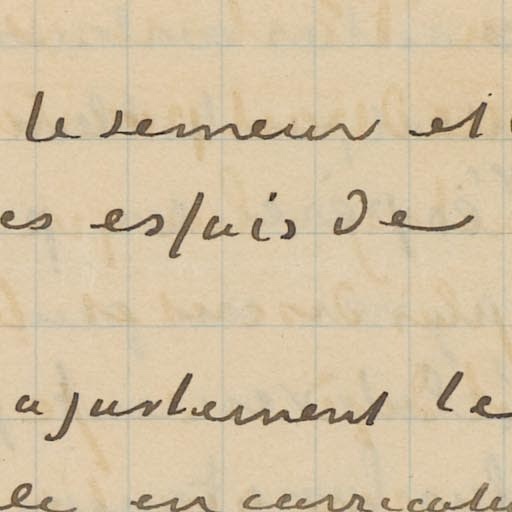 le semeur et
es espris de
ajustement le
le en carricatu